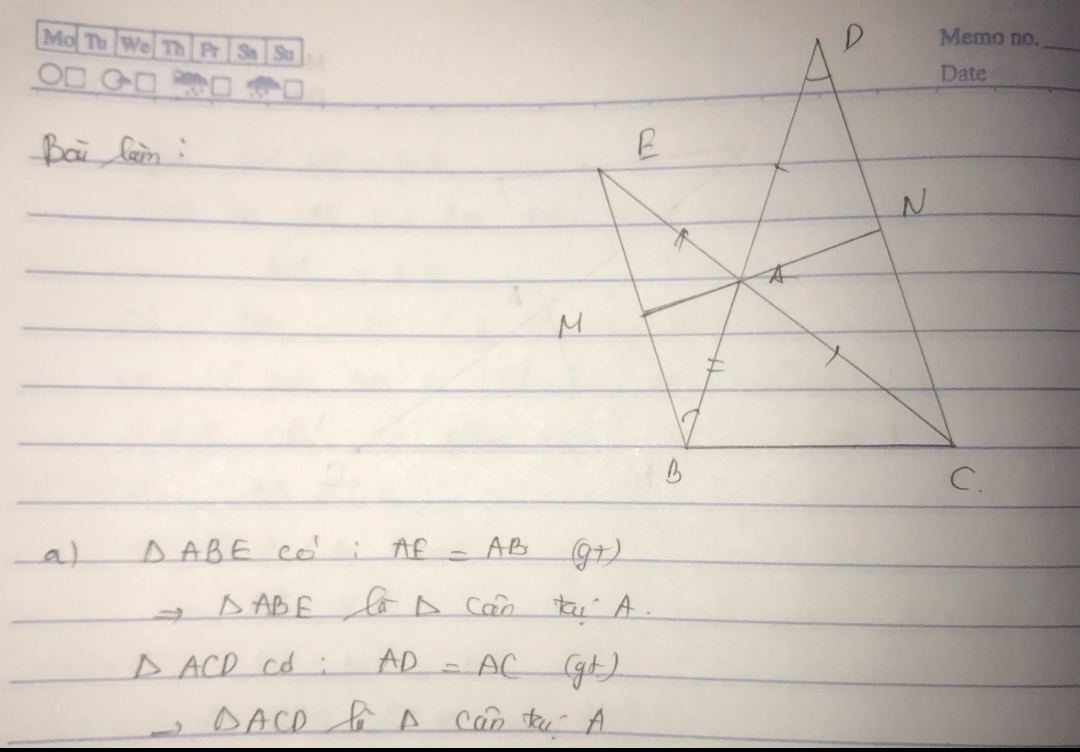 Mo Tu We Th Fr Sa Su
Memo no.
Date
Bài làm :
D
E
N
A
M
B
C.
a) Δ ABE có : AE = AB (gt)
⇒ Δ ABE là Δ cân tại A.
Δ ACD có : AD = AC (gt)
⇒ Δ ACD là Δ cân tại A